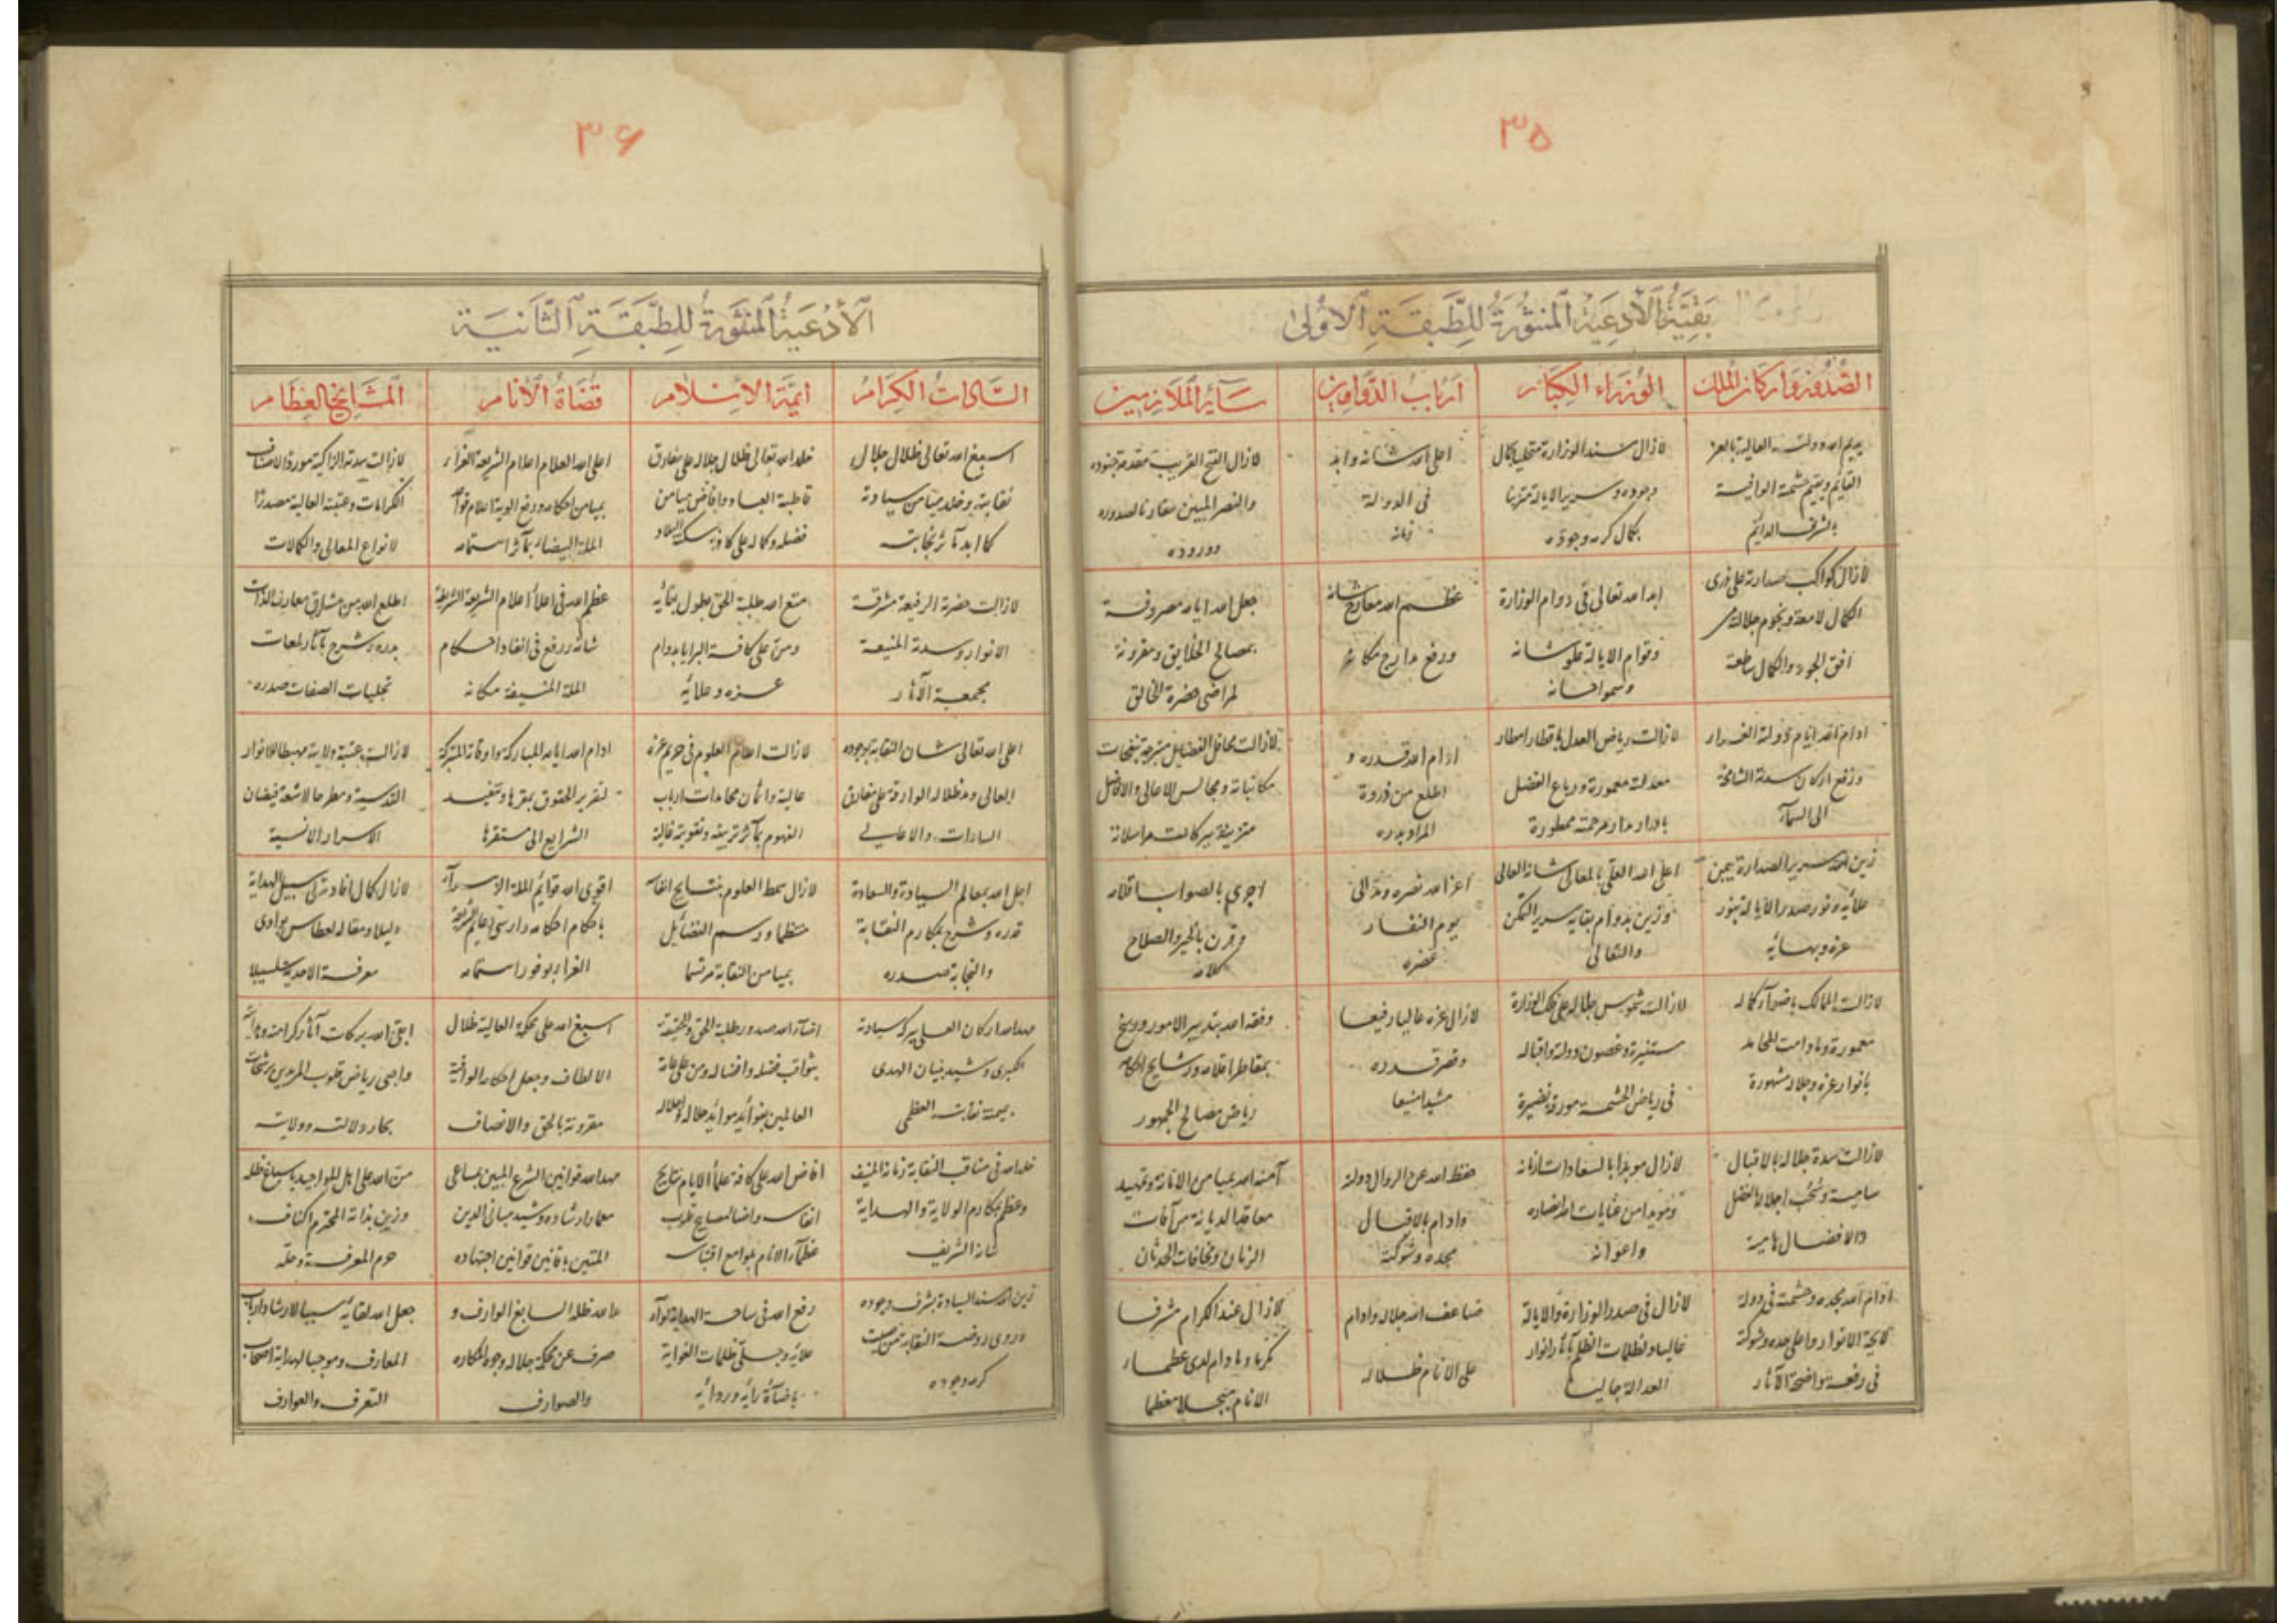 ۳۵
بَقِيَّةُ الْأَدْعِيَةِ الْمَنْثُورَةِ لِلطَّبَقَةِ الْأُولَىٰ
الصدور وارکان الملك
الوزراء الکبار
ارباب الدواوین
سائر الملازمین
یدیم الله دولته العالیة بالعز
القائم ویقیم حشمته الوافیة
بالشرف الدائم
لازال مسند الوزارة متحلیا بکمال
وجوده وسریر الایالة متزینا
بکمال کرمه وجوده
اعلی الله شانه وابد
فی الدولة
زمانه
لازال الفتح القریب مقدمة جنوده
والنصر المبین مقارنا لصدوره
ووروده
لازال کواکب صدارته علی ذری
الکمال لامعة ونجوم جلالته من
افق الجود والکمال ساطعة
ابد الله تعالی فی دوام الوزارة
وقوام الایالة علو شانه
وسمو احسانه
عظم الله معارج شانه
ورفع مدارج مکانه
جعل الله ایامه مصروفة
بمصالح الخلایق ومقرونة
لمراضی حضرة الخالق
ادام الله ایام دولته الغراء
ورفع ارکان سدته الشامخة
الی السماء
لازالت ریاض العدل باقطار امطار
معدلته معمورة ورباع الفضل
مرحمته ممطورة
ادام الله قدره و
اطلع من ذروة
المراد بدره
لازالت محافل الفضایل متبرجة بنفحات
مکاتباته ومجالس الاعالی والافاضل
متزینة ببرکات مراسلاته
زین الله سریر الصدارة بیمن
علائه ونور صدر الایالة بنور
عزه وبهائه
اعلی الله العلی بالمعالی شانه العالی
وزین بدوام بقایه سریر التمکن
والتعالی
اعز الله نصره ومد الی
یوم التناد
عصره
اجری بالصواب اقلامه
وقرن بالخیر والصلاح
کلامه
لازالت الممالک باضواء کماله
معمورة ومادامت المحامد
بانوار عزه وجلاله مشهورة
لازالت شموس جلاله علی فلک الوزارة
مستنیرة وغصون دولته واقباله
فی ریاض الحشمة مورقة نضیرة
لازال عزه عالیا رفیعا
وقصر قدره
مشیدا منیعا
وفقه الله بتدبیر الامور ورشح
بمقاطر اقلامه ورشایح احکامه
ریاض مصالح الجمهور
لازالت سدة جلاله بالاقبال
سامیة وسحب اجلاله بالفضل
والافضال هامیة
لازال مؤیدا بالسعادات ازمانه
ومؤیدا من عنایات الله انصاره
واعوانه
حفظ الله عن الزوال دولته
وادام بالاقبال
مجده وشوکته
آمنه الله بمیامن الامانة وتمهید
معاقد الدیانة من آفات
الزمان ومخافات الحدثان
ادام الله مجده وحشمته فی دولة
لایحة الانوار واعلی جده وشوکته
فی رفعة واضحة الآثار
لازال فی صدر الوزارة والایالة
عالیا ولظلمات الظلم بآثار انوار
العدالة جالیا
ضاعف الله جلاله وادام
علی الانام ظلاله
لازال عند الکرام مشرفا
مکرما ومادام لدی عظماء
الانام مبجلا معظما
۳۶
اَلْأَدْعِيَةُ الْمَنْثُورَةُ لِلطَّبَقَةِ الثَّانِيَةِ
السادات الکرام
ائمة الاسلام
قضاة الأنام
المشایخ العظام
اسبغ الله تعالی ظلال جلال
نقابته وخلد میامن سیادته
کما ابد مآثر نجابته
خلد الله تعالی ظلال جلاله علی مفارق
قاطبة العباد وافاض میامن
فضله وکماله علی کافة سکنة البلاد
اعلی الله العلام اعلام الشریعة الغراء
بمیامن احکامه ورفع الویة اعلام
الملة البیضاء بمآثر اهتمامه
لازالت سدته الزاکیة موردا لاصناف
الکرامات وعتبته العالیة مصدرا
لانواع المعالی والکمالات
لازالت حضرته الرفیعة مشرقة
الانوار وسدته المنیعة
مجمعة الآثار
متع الله طلبة الحق بطول بقائه
ومن علی کافة البرایا بدوام
عزه وعلائه
عظم الله فی اعلاء اعلام الشریعة الشریفة
شانه ورفع فی انفاد احکام
الملة المنیفة مکانه
اطلع الله من مشارق معارف الذات
بدره وشرح بآثار لمعات
تجلیات الصفات صدره
اعلی الله تعالی شان النقابة بوجوده
العالی ومد ظلاله الوارفة علی مفارق
السادات والاعالی
لازالت اعلام العلوم فی حریم عزه
عالیة واثمان محامدات ارباب
الفهوم بمآثر تربیته وتقویته غالیة
ادام الله ایامه المبارکة واوقاته المتبرکة
لتقریر الحقوق بمقرها وتنفیذ
الشرایع الی مستقرها
لازالت عتبة ولایته مهبطا للانوار
القدسیة ومطرحا لاشعة فیضان
الاسرار الانسیة
اجل الله بمعالم السیادة والسعادة
قدره وشرح بمکارم النقابة
والنجابة صدره
لازال سمط العلوم بنتایج انفاسه
منتظما ورسم الفضایل
بمیامن النقابة مرتسما
اقوی الله قوایم الملة الزهراء
باحکام احکامه وارسی دعایم الشریعة
الغراء بوفور اهتمامه
لازال کمال افادته الی سبیل الهدایة
دلیلا ومقاله لعطاش بوادی
معرفة الاحدیة سلسبیلا
مهد الله ارکان العلی ببرکة سیادته
الکبری وشید بنیان الهدی
بیمن نقابته العظمی
اضاء الله صدور طلبة الحق والحقیقة
بثواقب فضله وافضاله ومن علی عامة
العالمین بفوائد موائد جلاله واجلاله
اسبغ الله علی محکمته العالیة ظلال
الالطاف وجعل احکامه الوافیة
مقرونة بالحق والانصاف
ابقی الله برکات آثار کرامته
واحیی ریاض قلوب المریدین برشحات
بحار دلالته وولایته
خلد الله فی مناقب النقابة زمانه المنیف
وعظم بمکارم الولایة والهدایة
شانه الشریف
افاض الله علی کافة علماء الایام نتایج
انفاسه واضاء مصابیح قلوب
عظماء الانام بلوامع اقتباسه
مهد الله قوانین الشرع المبین بمساعی
معمار ارشاده وشید مبانی الدین
المتین بافانین قوانین اجتهاده
من الله علی اهل المواجید باسباغ ظله
وزین بذاته المحترم اکناف
حرم المعرفة وحله
زین الله مسند السیادة بشرف وجوده
واروی روضة النقابة من صیب
کرمه وجوده
رفع الله فی ساحة الهدایة لواء
علائه وجلی ظلمات الغوایة
باضاءة رایه وروائه
مد الله ظله السابغ الوارف و
صرف عن محکمة جلاله وجوه المکاره
والصوارف
جعل الله لقائه سببا لارشاد ارباب
المعارف وموجبا لهدایة اصحاب
التعرف والعوارف